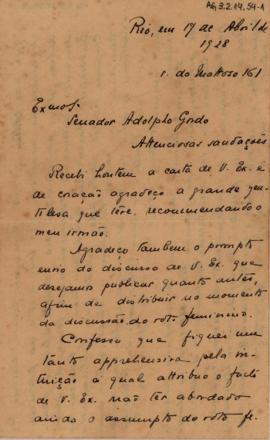 AG,3.2.14,54-1
Rio, em 17 de Abril de
1928
r. do Mattoso 161
Exmo Snr.
Senador Adolpho Gordo
Attenciosas saudações
Recebi hontem a carta de V. Ex. e
de coração agradeço a grande gen-
tileza que teve, recommendando o
meu irmão.
Agradeço tambem o prompto
envio do discurso de V. Ex. que
desejamos publicar quanto antes,
afim de distribuir no momento
da discussão do voto feminino.
Confesso que fiquei um
tanto apprehensiva pela in-
tuição á qual attribuo o facto
de V. Ex. não ter abordado
ainda o assumpto do voto fe-